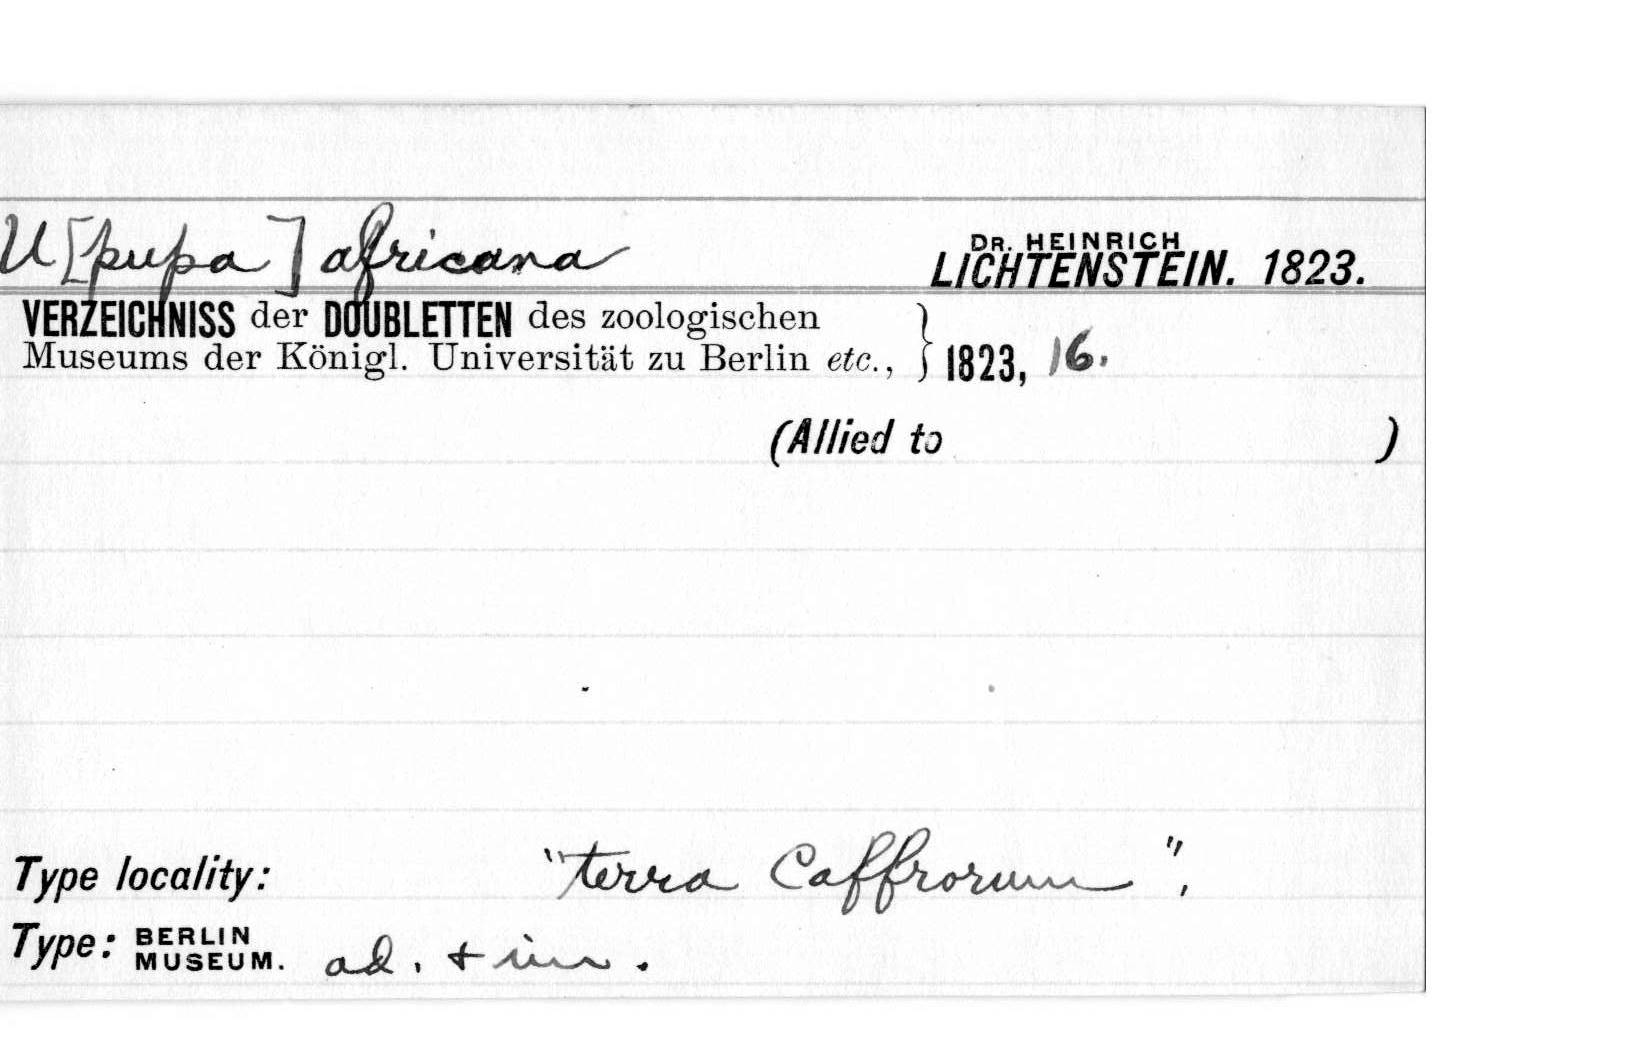 U[pupa] africana
DR. HEINRICH
LICHTENSTEIN. 1823.
VERZEICHNISS der DOUBLETTEN des zoologischen
Museums der Königl. Universität zu Berlin etc., } 1823, 16.
(Allied to )
Type locality: "terra Caffrorum",
Type: BERLIN MUSEUM. ad. + im.